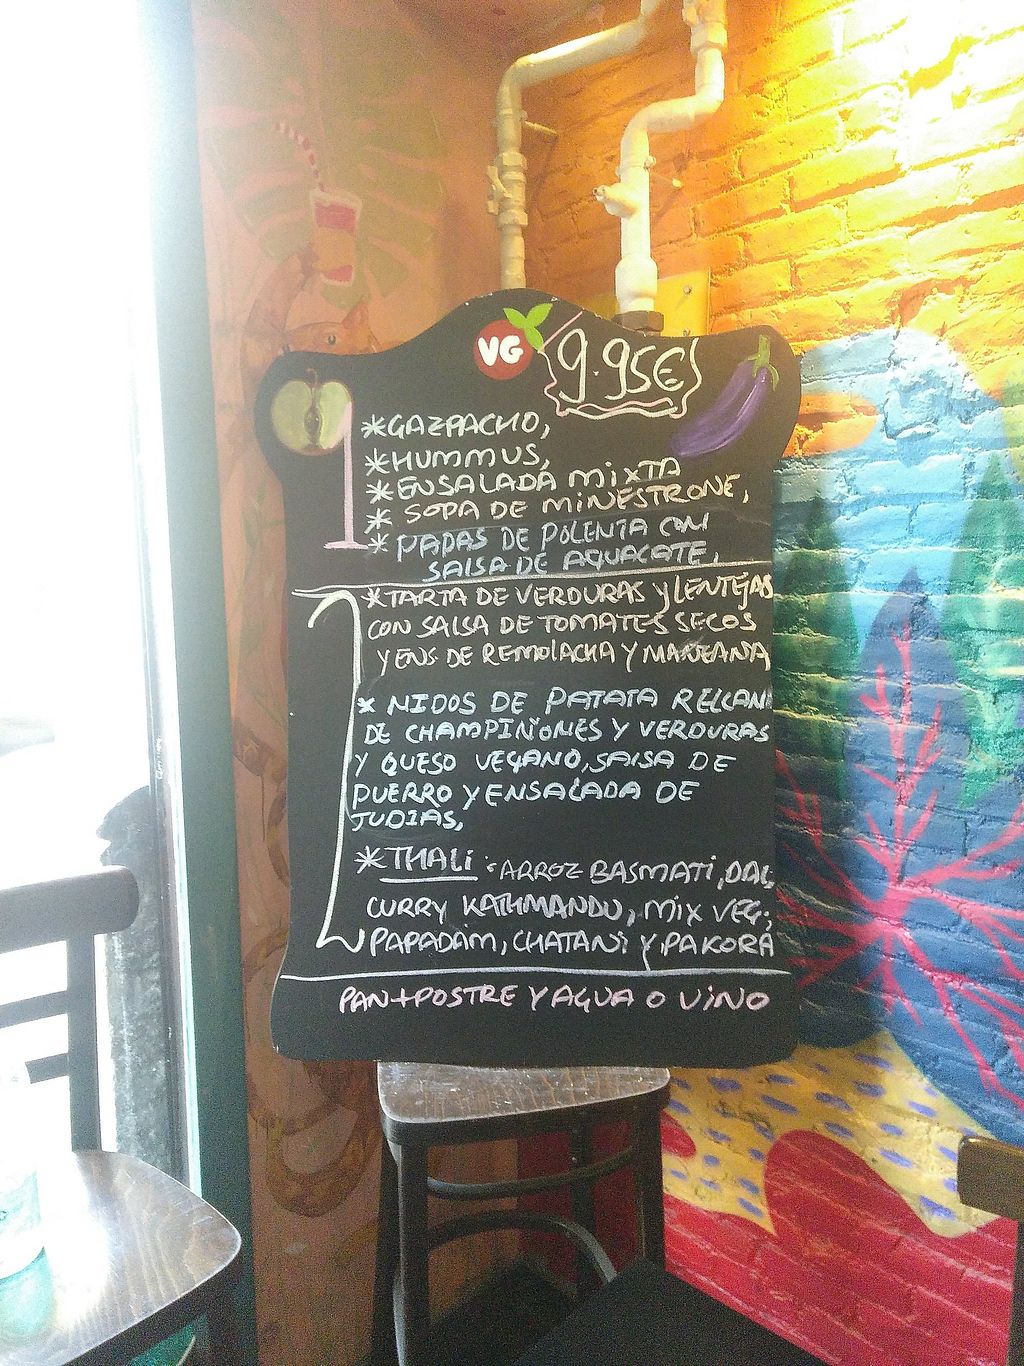 VG 9.95€
1 *GAZPACHO,
*HUMMUS,
*ENSALADA MIXTA
* SOPA DE MINESTRONE,
* PAPAS DE POLENTA CON
SALSA DE AGUACATE,
2 *TARTA DE VERDURAS y LENTEJAS
CON SALSA DE TOMATES SECOS
Y ENS DE REMOLACHA Y MANZANA
* NIDOS DE PATATA RELLAN
DE CHAMPIÑONES Y VERDURAS
Y QUESO VEGANO, SALSA DE
PUERRO Y ENSALADA DE
JUDIAS,
*THALi :ARROZ BASMATi, DAL,
CURRY KATHMANDU, MIX VEG,
PAPADAM, CHATANi Y PAKORA
PAN+POSTRE Y AGUA O ViNO